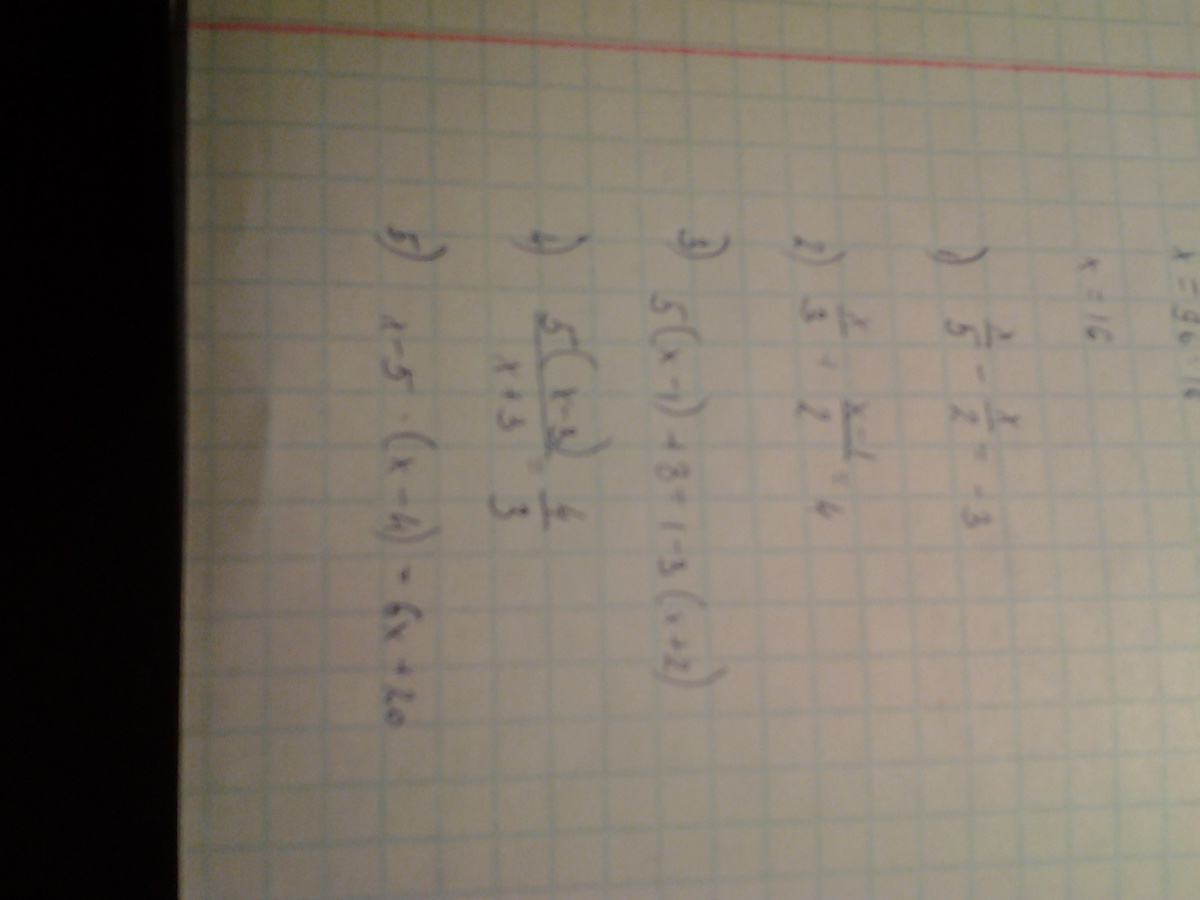 x = 16
1) x/5 - x/2 = -3
2) x/3 + (x-1)/2 = 4
3) 5(x-1)+8=1-3(x+2)
4) 5(x-3)/(x+3) = 4/3
5) x-5·(x-4) = 6x+20